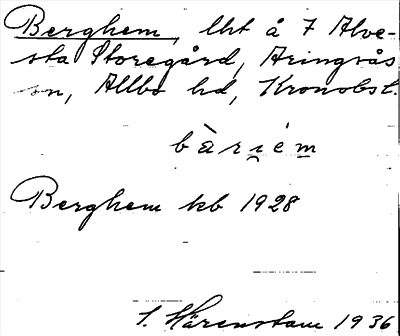 Berghem, lht å 7 Alve-
sta Storegård, Aringsås
sn, Allbo hd, Kronobsl.
bàriém
Berghem kb 1928
S. Härenstam 1936